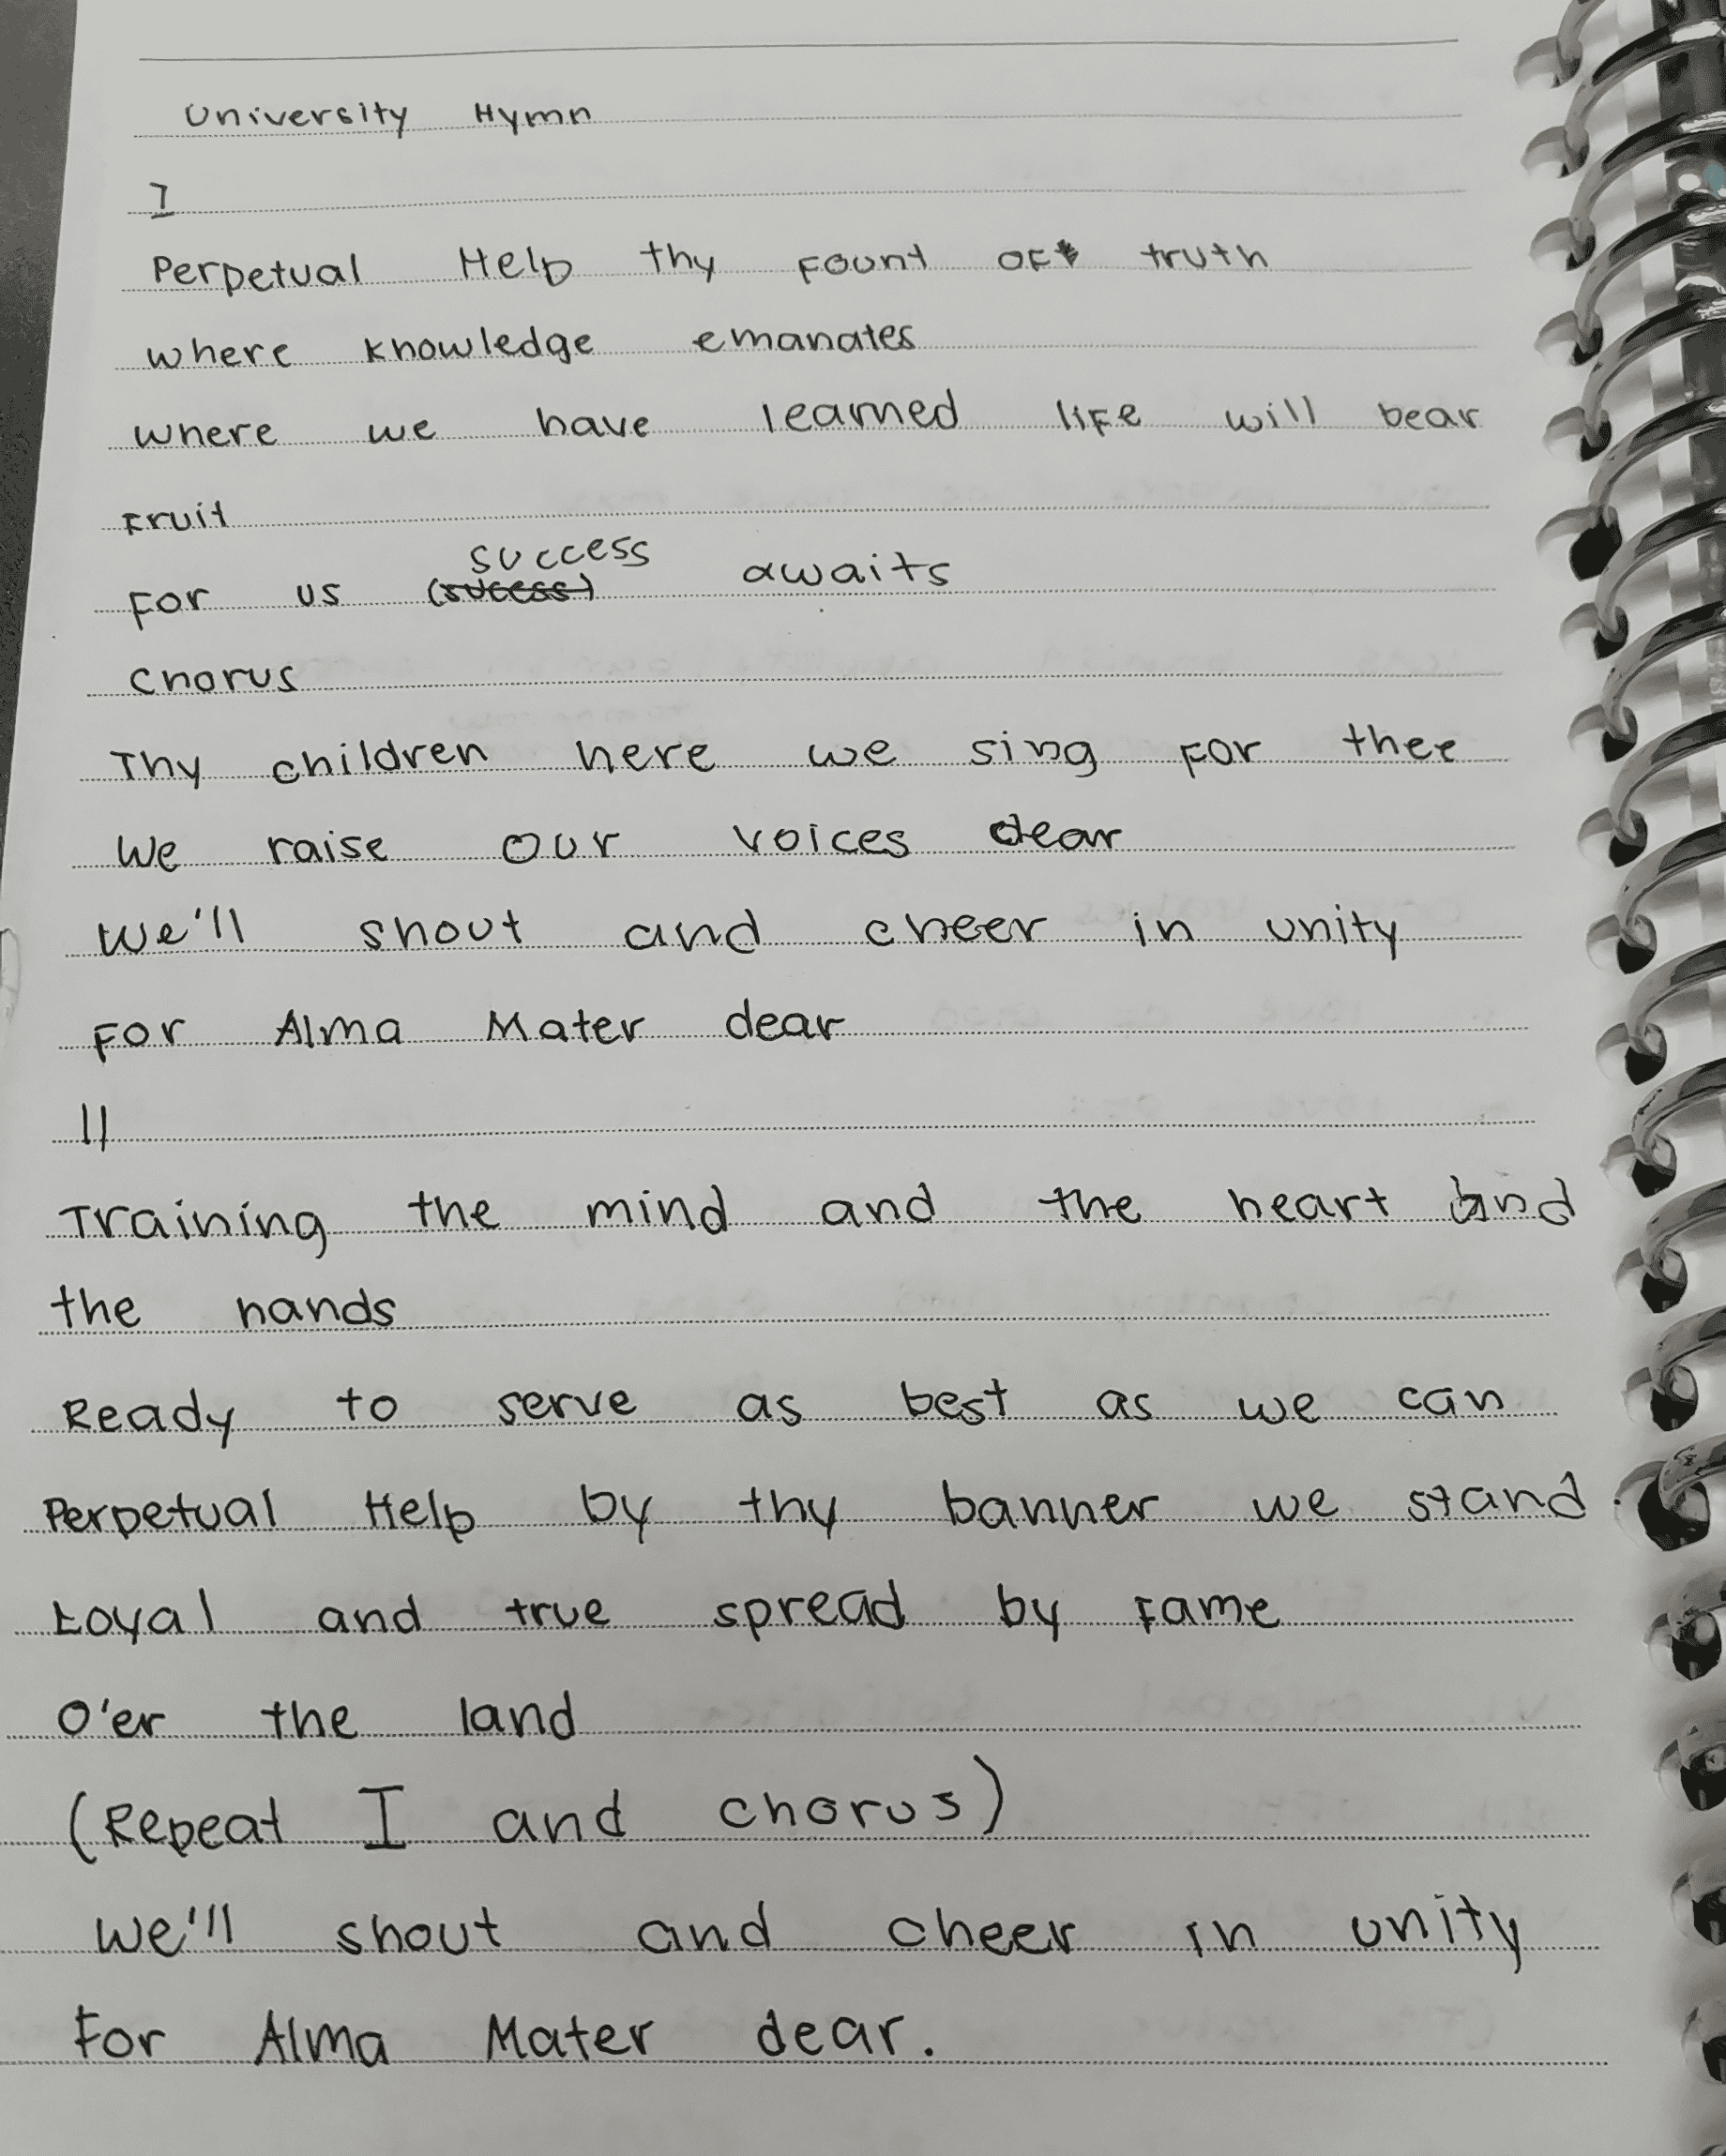 University Hymn
I
Perpetual Help thy fount of truth
where knowledge emanates
where we have learned life will bear
Fruit
success
For us (sucess) awaits
Chorus
Thy children here we sing for thee
We raise our voices dear
We'll shout and cheer in unity
For Alma Mater dear
II
Training the mind and the heart and
the hands
Ready to serve as best as we can
Perpetual Help by thy banner we stand.
Loyal and true spread by fame
O'er the land
(Repeat I and chorus)
We'll shout and cheer in unity
For Alma Mater dear.